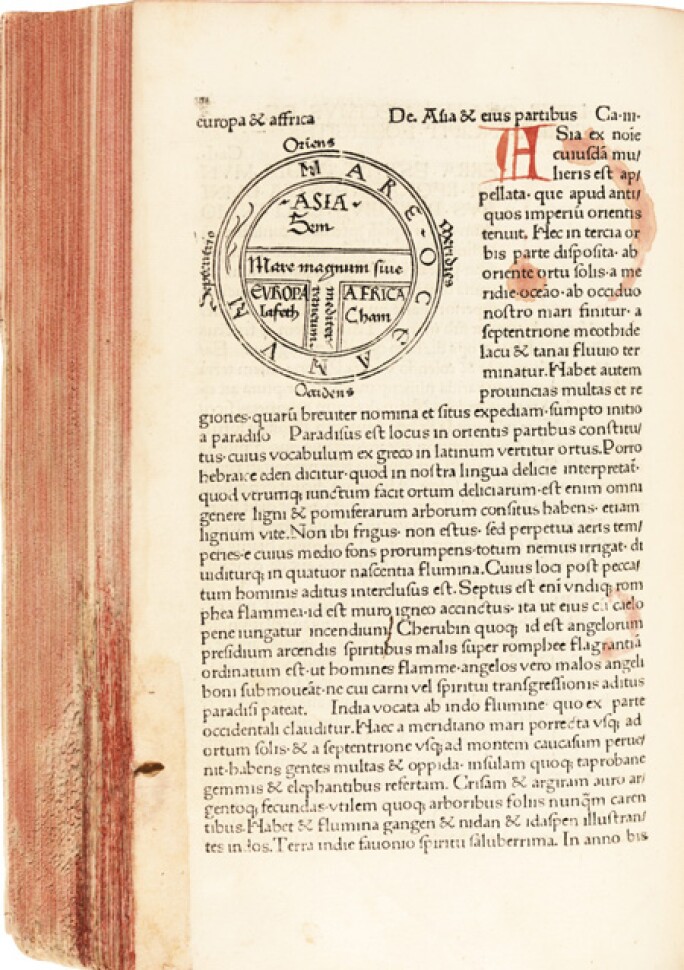 europa & affrica
De. Asia & eius partibus Ca·iii·
Oriens
MARE·OCEANVM
Meridies
Septentrio
Occidens
·ASIA·
Sem
Mare magnum siue
mediterraneum
EVROPA
Iafeth
AFRICA
Cham
ASia ex noie
cuiusdā mu/
lieris est ap/
pellata· que apud anti/
quos imperiū orientis
tenuit. Hec in tercia or
bis parte disposita· ab
oriente ortu solis· a me
ridie·oceāo·ab occiduo
nostro mari finitur· a
septentrione meothide
lacu & tanai fluuio ter
minatur. Habet autem
prouincias multas et re
giones·quarū breuiter nomina et situs expediam·sumpto initio
a paradiso Paradisus est locus in orientis partibus constitu/
tus·cuius vocabulum ex greco in latinum vertitur ortus. Porro
hebraice eden dicitur·quod in nostra lingua delicie interpretat̄·
quod vtrumq; iunctum facit ortum deliciarum·est enim omni
genere ligni & pomiferarum arborum consitus habens· etiam
lignum vite. Non ibi frigus· non estus· sed perpetua aeris tem/
peries·e cuius medio fons prorumpens·totum nemus irrigat· di
uiditurq; in quatuor nascentia flumina. Cuius loci post pecca/
tum hominis aditus interclusus est. Septus est eni vndiq; rom
phea flammea·id est muro igneo accinctus· ita ut eius cū caelo
pene iungatur incendium/ Cherubin quoq; id est angelorum
presidium arcendis spiritibus malis super romphee flagrantiā
ordinatum est·ut homines flamme·angelos vero malos angeli
boni submoueāt·ne cui carni vel spiritui transgressionis aditus
paradisi pateat. India vocata ab indo flumine· quo ex parte
occidentali clauditur. Haec a meridiano mari porrecta vsq; ad
ortum solis· & a septentrione vsq; ad montem caucasum perue/
nit·habens gentes multas & oppida· insulam quoq; taprobane
gemmis & elephantibus refertam. Crisam & argiram auro ar/
gentoq; fecundas·vtilem quoq; arboribus foliis nunq̄m caren
tibus. Habet & flumina gangen & nidan & idaspen illustran/
tes indos. Terra indie fauonio spiritu saluberrima. In anno bis